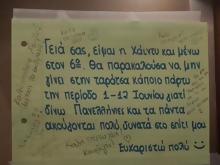 Γειά σας, είμαι η Χάντυ και μένω
στον 6ο. Θα παρακαλούσα να μην
γίνει στην ταράτσα κάποιο πάρτυ
την περίοδο 1-12 Ιουνίου γιατί
δίνω Πανελλήνιες και τα πάντα
ακούγονται πολύ δυνατά στο σπίτι μου
Ευχαριστώ πολύ